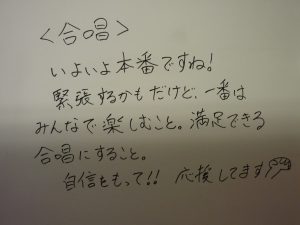 <合唱>
いよいよ本番ですね!
緊張するかもだけど、一番は
みんなで楽しむこと。満足できる
合唱にすること。
自信をもって!! 応援してます